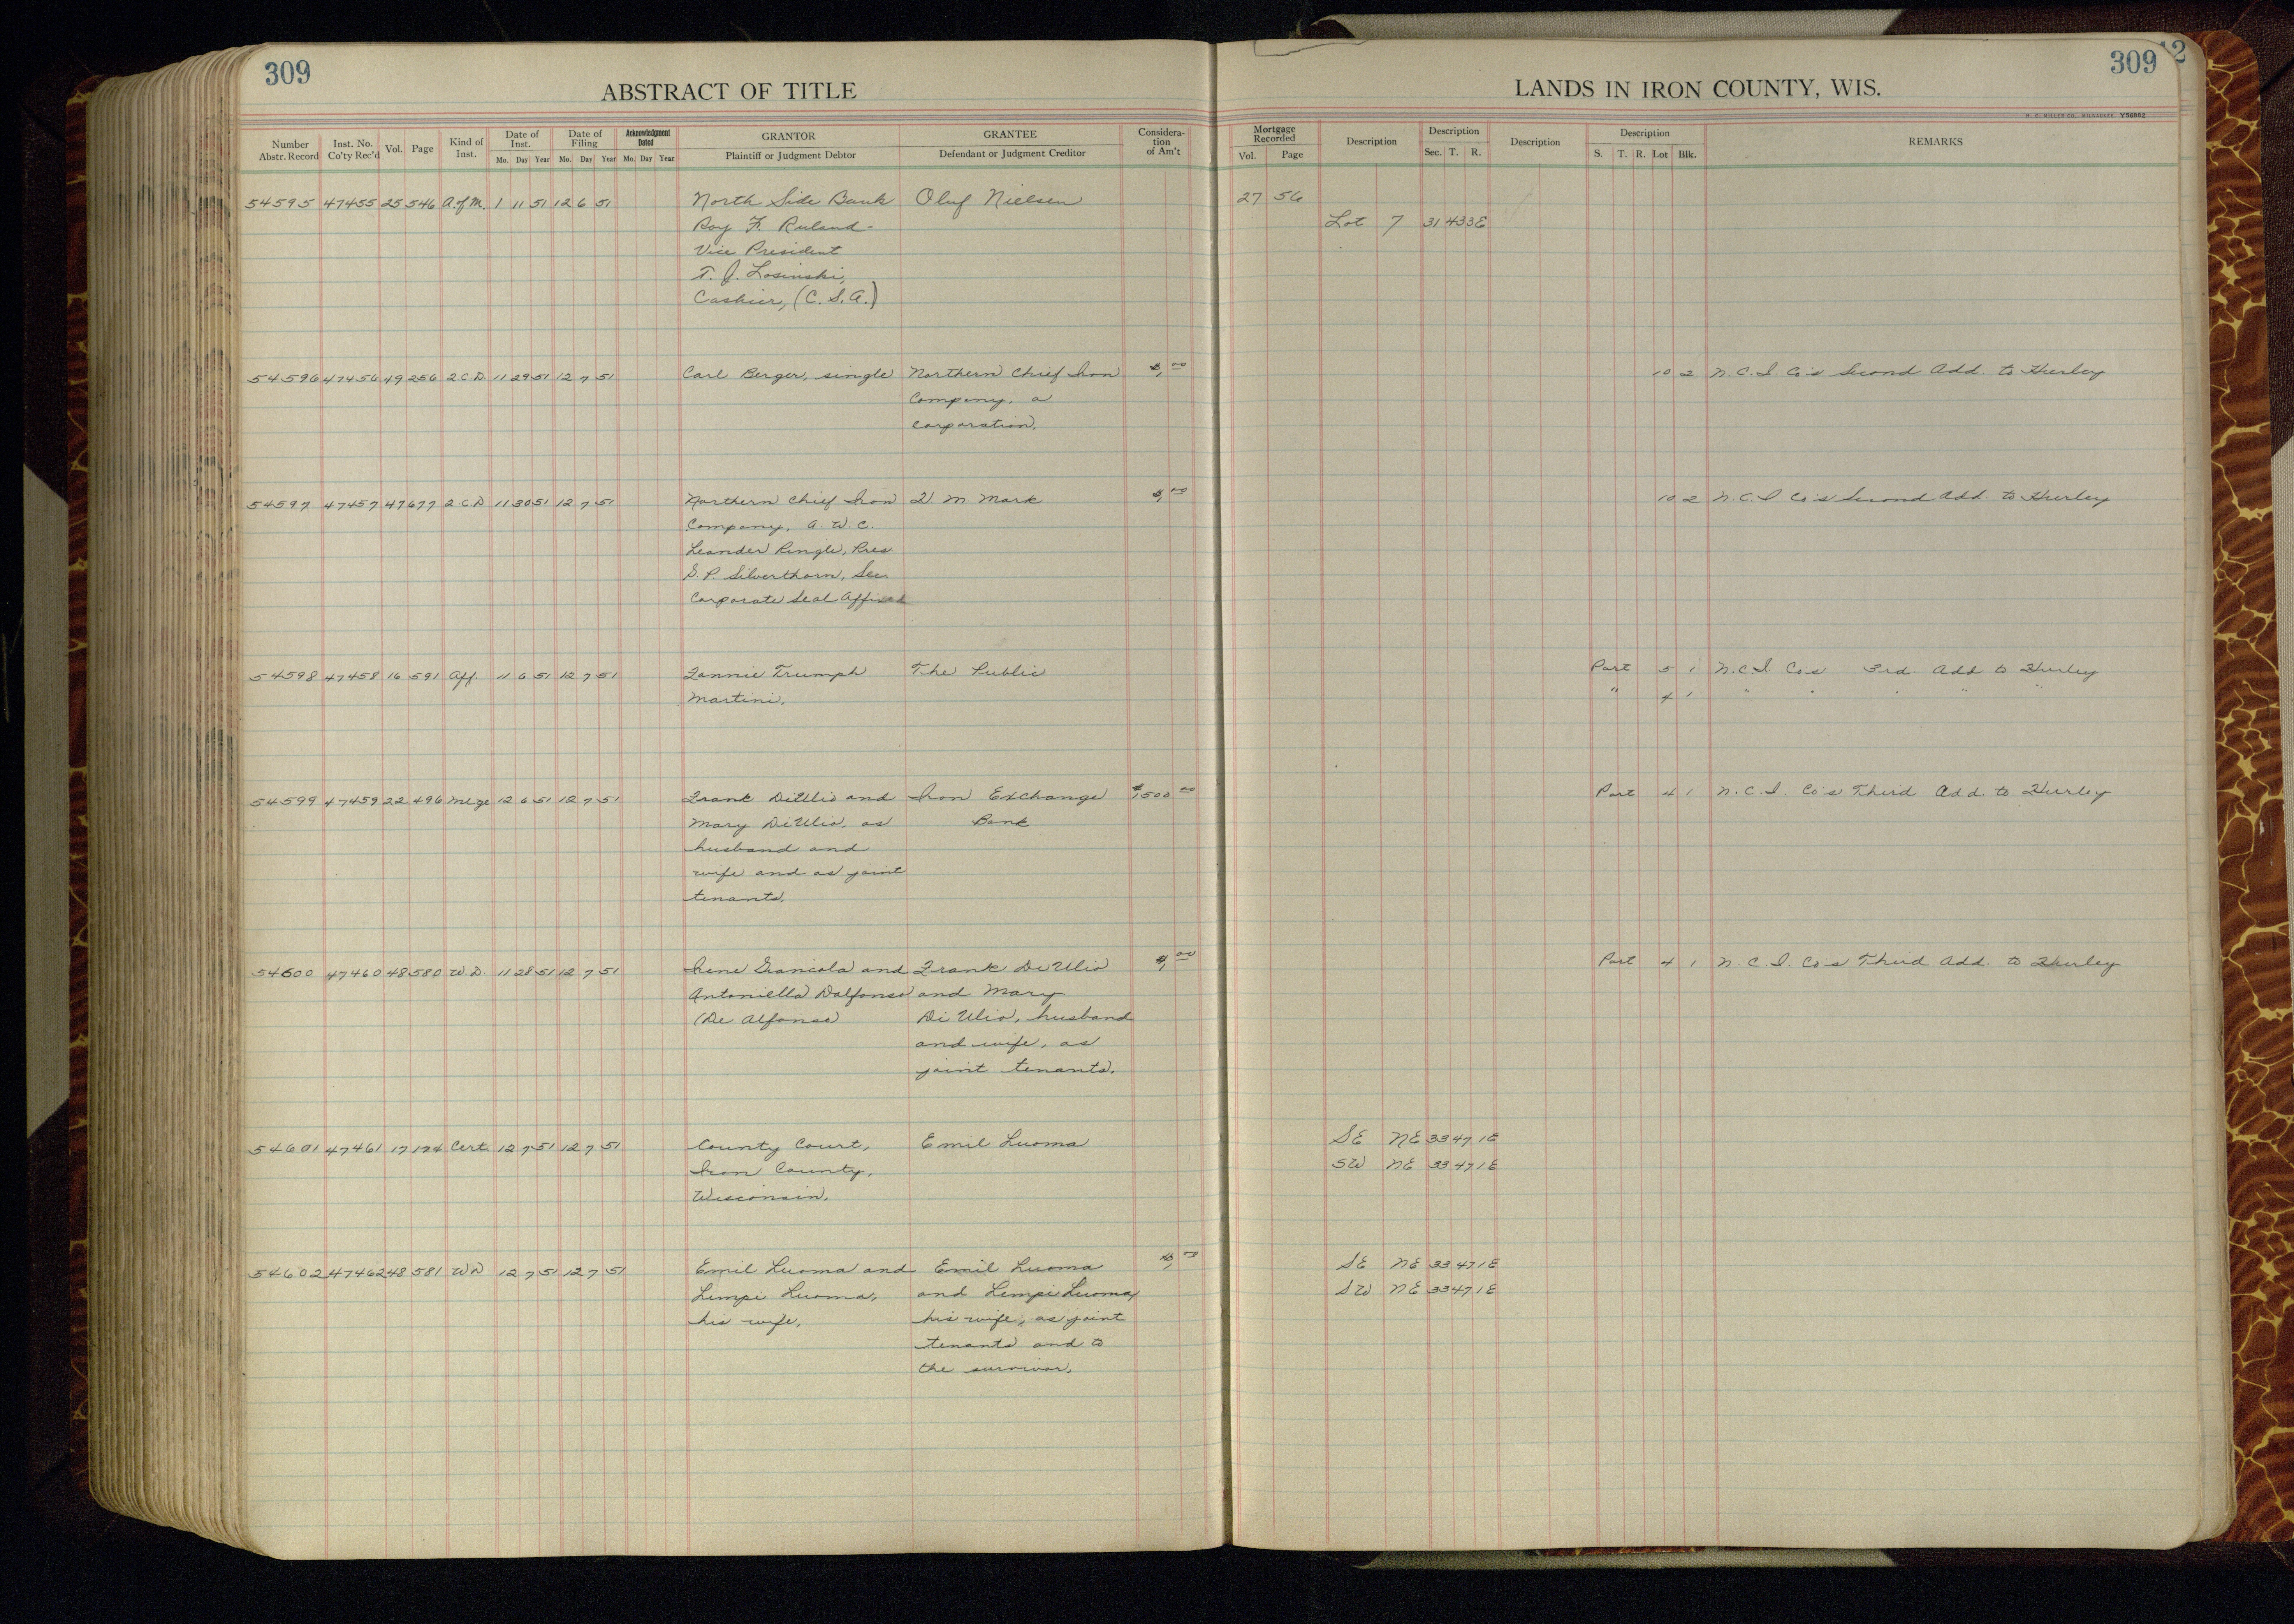 309
ABSTRACT OF TITLE
LANDS IN IRON COUNTY, WIS.
309
H. C. MILLER CO., MILWAUKEE V58852
Number Abstr. Record Inst. No. Co'ty Rec'd Vol. Page Kind of Inst. Date of Inst. Mo. Day Year Date of Filing Mo. Day Year Acknowledgment Dated Mo. Day Year GRANTOR Plaintiff or Judgment Debtor GRANTEE Defendant or Judgment Creditor Consideration of Am't Mortgage Recorded Vol. Page Description Description Sec. T. R. Description Description S. T. R. Lot Blk. REMARKS
54595 47455 25 546 A. of M. 1 11 51 12 6 51 North Side Bank Oluf Nielsen 27 56
Roy F. Ruland- Lot 7 31 43 3E
Vice President
T. J. Losinski,
Cashier, (C. S. A.)
54596 47456 49 256 2 C. D. 11 29 51 12 7 51 Carl Berger, single Northern Chief Iron $1,00 10 2 N. C. I. Co's Second Add. to Hurley
Company, a
corporation.
54597 47457 47 677 2 C. D 11 30 51 12 7 51 Northern Chief Iron M. Mark $1,00 10 2 N. C. I Co's Second Add. to Hurley
Company, A. W. C.
Leander Pingle, Pres
S. P. Silverthorn, Sec.
Corporate Seal Affixed
54598 47458 16 591 Aff. 11 6 51 12 7 51 Fannie Trumph The Public Part 5 1 N. C. I. Co's 3rd. Add to Hurley
Martini. " 4 1 " " " " "
54599 47459 22 496 Mtge 12 6 51 12 7 51 Frank DiUlio and Iron Exchange $1,500 00 Part 4 1 N. C. I. Co's Third Add. to Hurley
Mary DiUlio, as Bank
husband and
wife and as joint
tenants.
54600 47460 48 580 W. D. 11 28 51 12 7 51 Irene Giancola and Frank DiUlio $1,00 Part 4 1 N. C. I. Co's Third Add. to Hurley
Antoniella Dalfonso and Mary
(De Alfonso) Di Ulio, husband
and wife, as
joint tenants.
54601 47461 17 174 Cert. 12 7 51 12 7 51 County Court, Emil Luoma SE NE 33 47 1E
Iron County, SW NE 33 47 1E
Wisconsin.
54602 47462 48 581 W D 12 7 51 12 7 51 Emil Luoma and Emil Luoma $1,00 SE NE 33 47 1E
Lempi Luoma, and Lempi Luoma, SW NE 33 47 1E
his wife, his wife, as joint
tenants and to
the survivor.